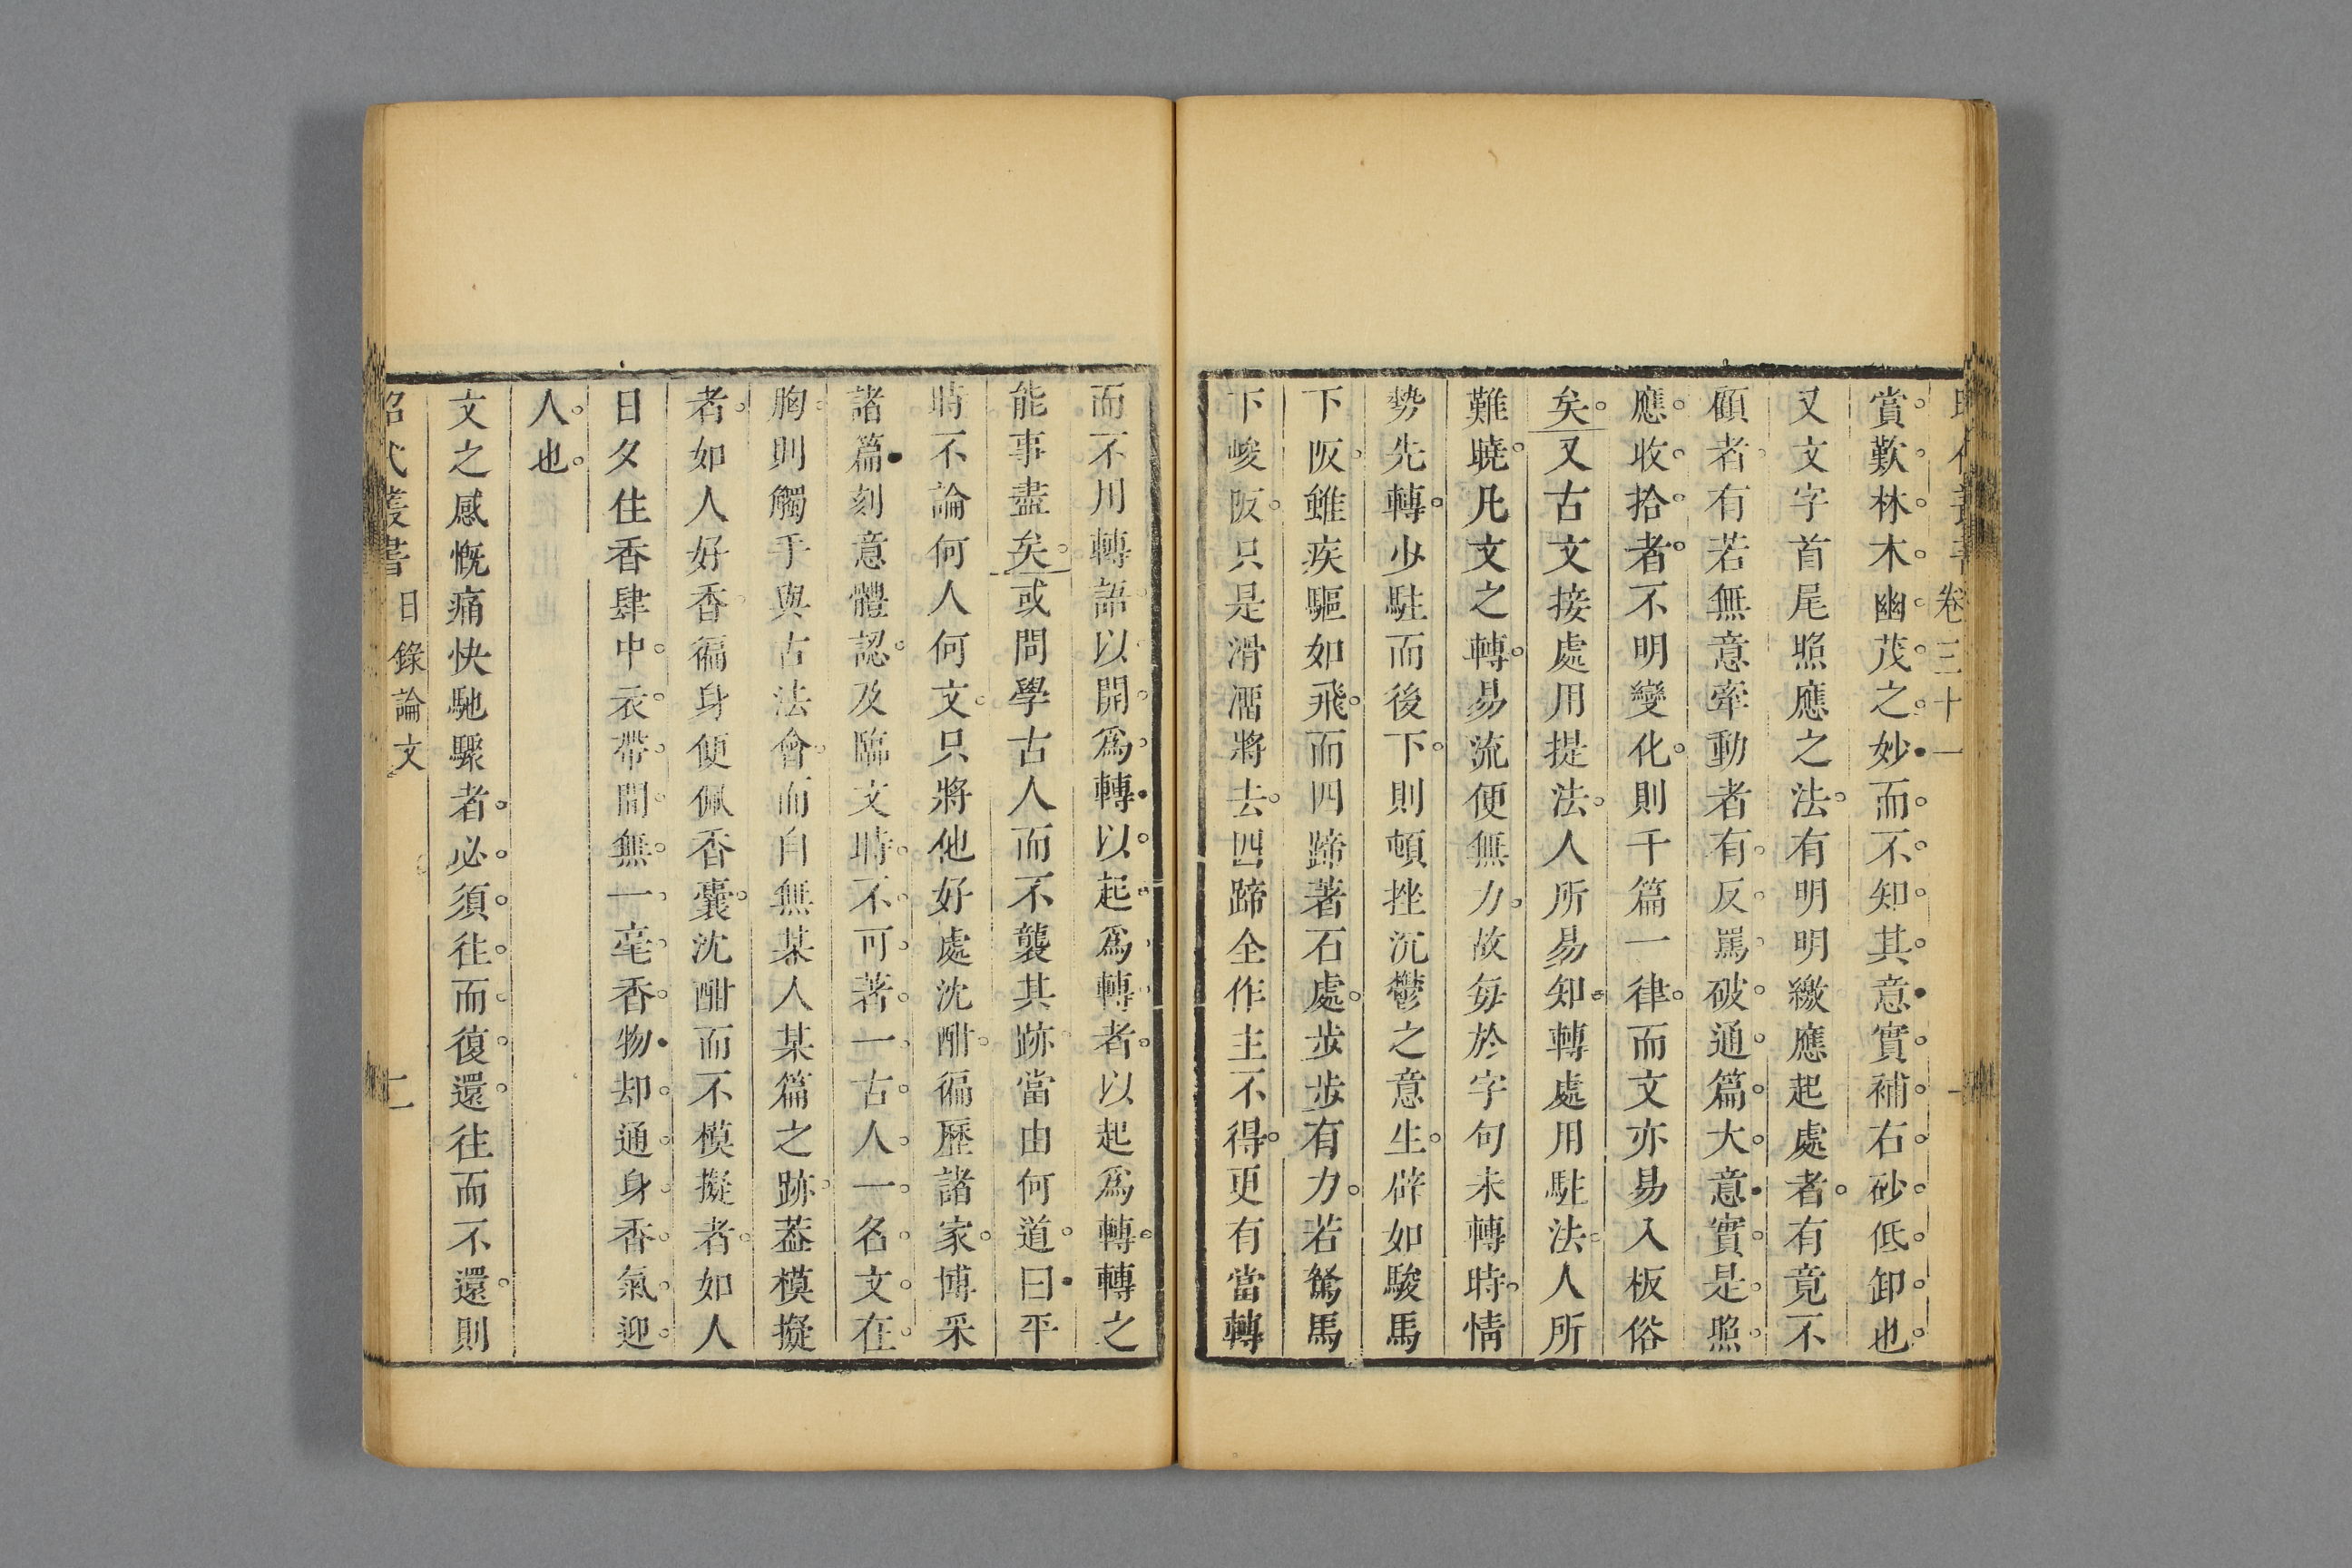 卷三十一
賞歎林木幽茂之妙而不知其意實補石砂低卸也
又文字首尾照應之法有明明繳應起處者有竟不
顧者有若無意牽動者有反罵破通篇大意實是照
應收拾者不明變化則千篇一律而文亦易入板俗
矣又古文接處用提法人所易知轉處用駐法人所
難曉凡文之轉易流便無力故每於字句未轉時情
勢先轉少駐而後下則頓挫沉鬱之意生辟如駿馬
下阪雖疾驅如飛而四蹄著石處步步有力若駑馬
下峻阪只是滑濡將去四蹄全作主不得更有當轉
而不用轉語以開爲轉以起爲轉者以起爲轉轉之
能事盡矣或問學古人而不襲其跡當由何道曰平
時不論何人何文只將他好處沈酣徧歷諸家博采
諸篇刻意體認及臨文時不可著一古人一名文在
胸則觸手與古法會而自無某人某篇之跡葢模擬
者如人好香徧身便佩香囊沈酣而不模擬者如人
日夕住香肆中衣帶間無一毫香物却通身香氣迎
人也
文之感慨痛快馳驟者必須往而復還往而不還則
昭代叢書 日錄論文 二